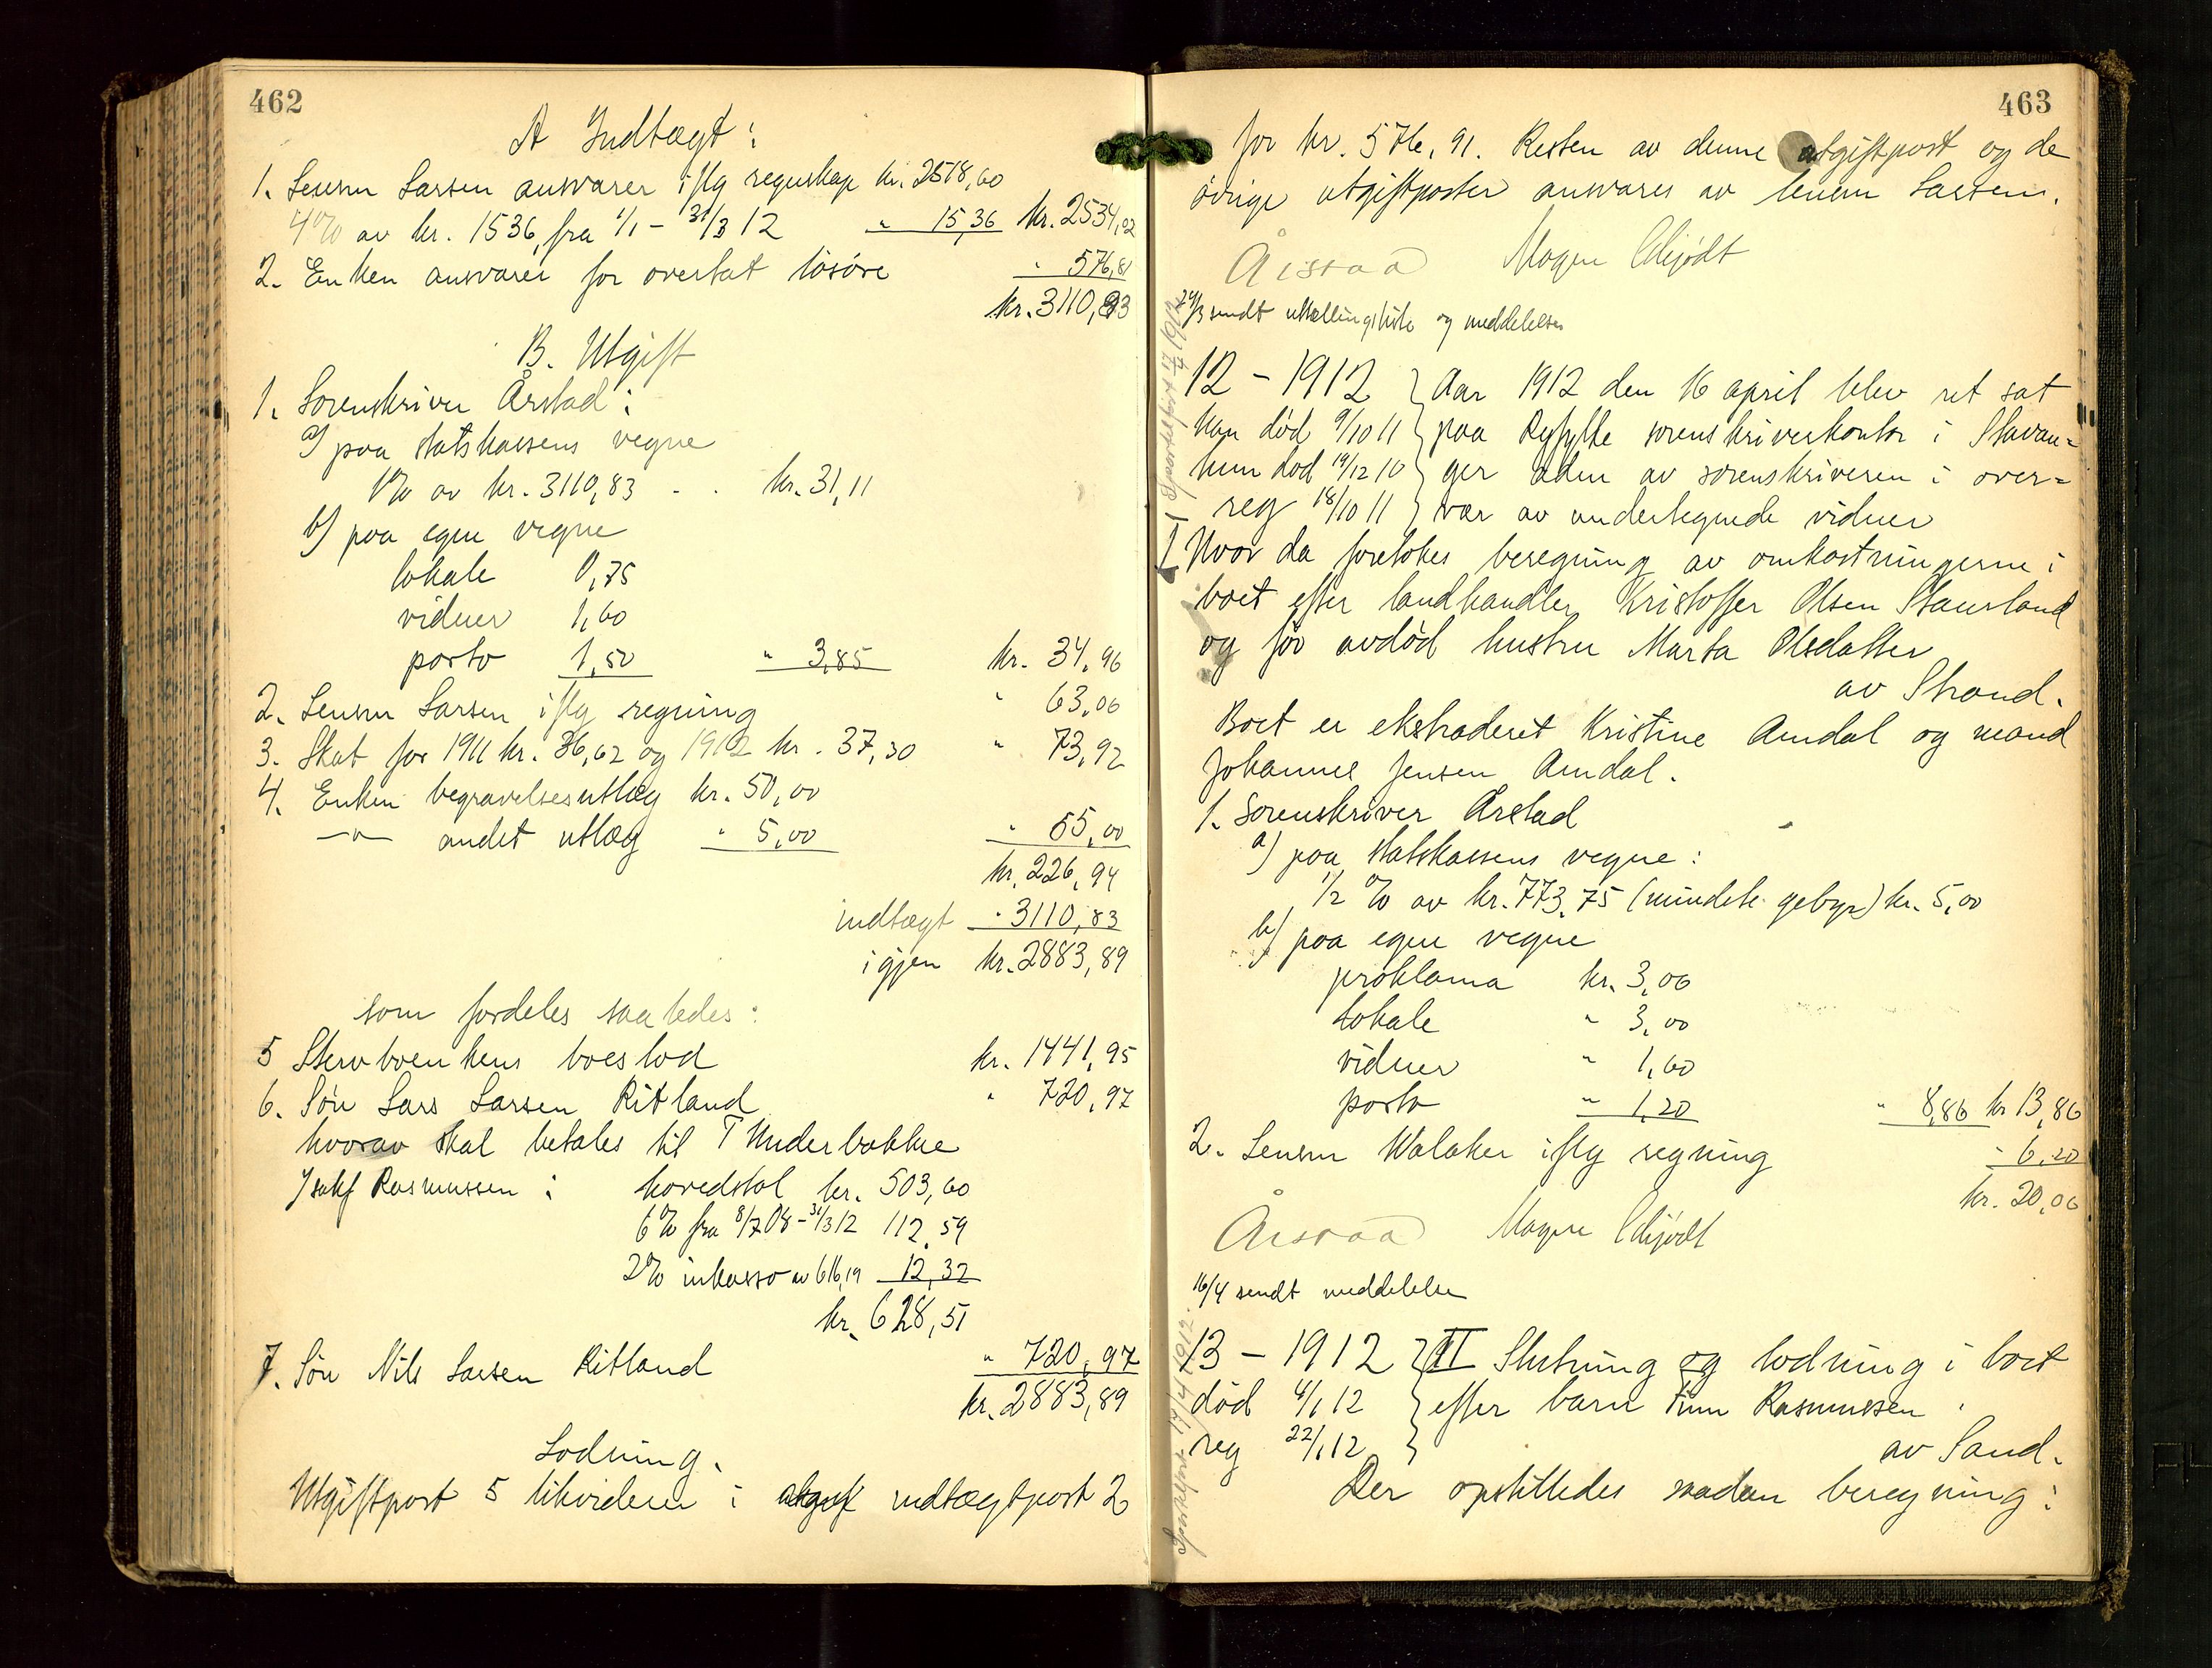 462
A Indtægt:
1. Lensm Larsen ansvarer iflg regnskap kr. 2518,60
4% av kr. 1536, fra 1/1 - 31/3 12 " 15,36 kr. 2534,02
2. Enken ansvarer for overtat løsøre " 576,81
kr. 3110,83
B. Utgift
1. Sorenskriver Årstad:
a) paa statskassens vegne
1% av kr. 3110,83 - . kr. 31,11
b) paa egne vegne
lokale 0,75
vidner 1,60
porto 1,50 " 3,85 kr. 34,96
2. Lensm Larsen iflg regning " 63,06
3. Skat for 1911 kr. 36,62 og 1912 kr. 37,30 " 73,92
4. Enken begravelsesutlæg kr. 50,00
—"— andet utlæg " 5,00 " 55,00
kr. 226,94
indtægt " 3110,83
igjen kr. 2883,89
som fordeles saaledes:
5 Stervboenkens boeslod kr. 1441,95
6. Søn Lars Larsen Ritland " 720,97
hvorav skal betales til T Underbakke
Isakf Rasmussen: hovedstol kr. 503,60
6% fra 8/7 08 - 31/3 12 112,59
2% inkasso av 616,19 12,32
kr. 628,51
7. Søn Nils Larsen Ritland " 720,97
kr. 2883,89
Lodning.
Utgiftpost 5 likvideres i indtægtpost 2
463
for kr. 576,91. Resten av denne utgiftpost og de
øvrige utgiftposter ansvares av lensm Larsen.
Årstad Magne
29/3 sendt utstillingsliste og meddelelser
12 - 1912 } Aar 1912 den 16 april blev ret sat
han død 9/10 11 } paa Ryfylke sorenskriverkontor i Stavan=
hun død 14/12 10 } ger aden av sorenskriveren i over=
reg 18/10 11 } vær av undertegnede vidner
I Hvor da foretokes beregning av omkostningerne i
boet efter landhandler Kristoffer Olsen Staursland
og før avdød hustru Marta Olsdatter
av Strand.
Boet er ekstraderet Kristine Amdal og mand
Johannes Jensen Amdal.
1. Sorenskriver Årstad
a) paa statskassens vegne:
1/2 % av kr. 773,75 (mindste gebyr) kr. 5,00
b) paa egne vegne
proklama kr. 3,06
lokale " 3,00
vidner " 1,60
porto " 1,20 " 8,86 kr 13,86
2. Lensm Walaker iflg regning " 6,20
kr. 20,06
Årstad Magne
16/4 sendt meddelelse
13 - 1912 } II Slutning og lodning i boet
død 6/1 12 } efter barn Finn Rasmussen
reg 22/1 12 } av Sand.
Der opstilledes saadan beregning: